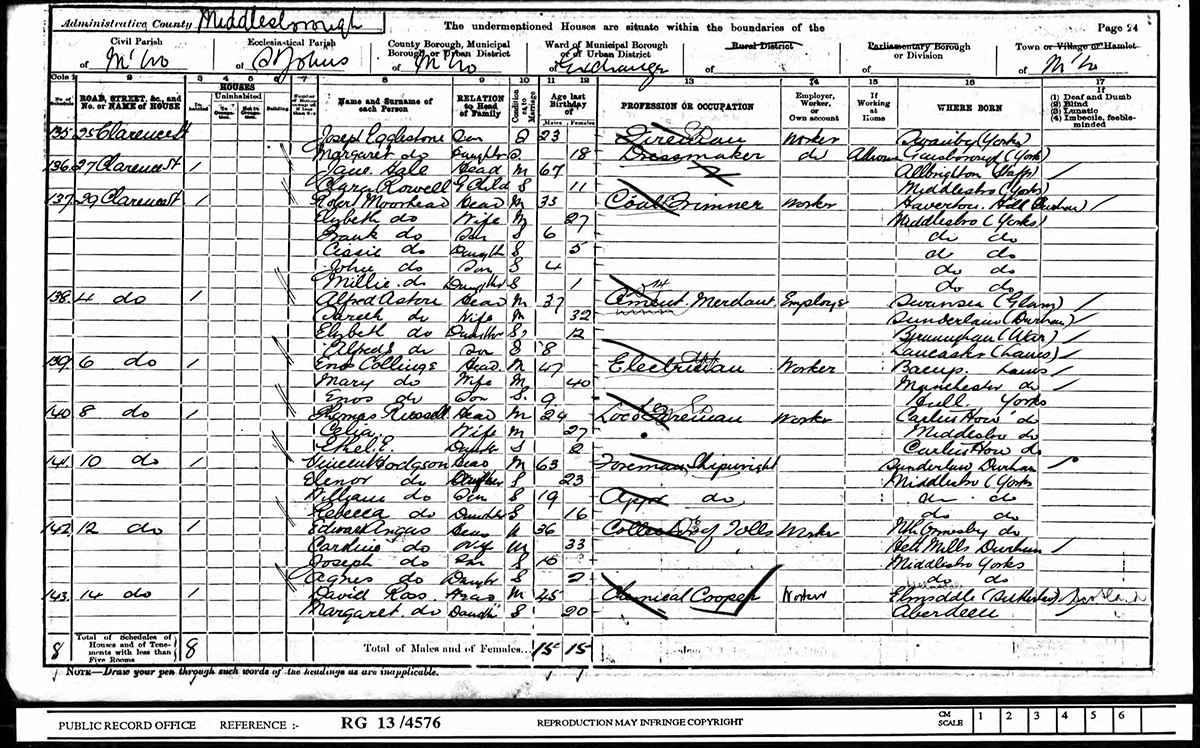 Administrative County Middlesborough The undermentioned Houses are situate within the boundaries of the Page 24
Civil Parish Ecclesiastical Parish County Borough, Municipal Borough, or Urban District Ward of Municipal Borough or of Urban District Rural District Parliamentary Borough or Division Town or Village or Hamlet
of M'bro of St Johns of M'bro of Exchange of of of M'bro
Cols 1 2 3 4 5 6 7 8 9 10 11 12 13 14 15 16 17
No. of Schedule ROAD, STREET, &c., and No. or NAME of HOUSE HOUSES Inhabited Uninhabited Building Name and Surname of each Person RELATION to Head of Family Condition as to Marriage Age last Birthday of Males Females PROFESSION OR OCCUPATION Employer, Worker, or Own account If Working at Home WHERE BORN If (1) Deaf and Dumb (2) Blind (3) Lunatic (4) Imbecile, feeble-minded
135 25 Clarence St Joseph Egglestone Son S 23 Fireman Worker Swainby (Yorks)
Margaret do Daughter S 18 Dressmaker do (York)
136 27 Clarence St 1 Jane Hall Head M 67 Albrighton
Clara Rowell G Child S 11 Middlesbro (Yorks)
137 29 Clarence St 1 Robert Moorhead Head M 33 Coal Trimmer Worker Haverton Hill Durham
Elzbeth do Wife M 27 Middlesbro (Yorks)
Frank do Son S 6 do do
Cissie do Daughter S 5 do do
John do Son S 4 do do
Millie do Daughter S 1 do do
138 4 do 1 Alfred Astore Head M 37 Cement Merchant Employer Swansea (Glam)
do Wife M 32 Sunderland (Durham)
Elzbeth do Daughter S 12 (War)
Alfred do Son S 8 Lancaster (Lancs)
139 6 do 1 Enos Collinge Head M 47 Electrician Worker Bacup Lancs
Mary do Wife M 40 Manchester do
Enos do Son S 9 Hull Yorks
140 8 do 1 Thomas Russell Head M 29 Loco Fireman Worker Carlin How do
Celia Wife M 27 Middlesbro do
Ethel E. Daughter S 2 Carlin How do
141 10 do 1 Vincent Hodgson Head M 63 Foreman Shipwright Sunderland Durham
Elenor do Daughter S 23 Middlesbro (Yorks
William do Son S 19 App do do do
Rebecca do Daughter S 16 do do
142 12 do 1 Edward Angus Head M 36 Collector of Tolls Worker Nth Ormesby do
Caroline do Wife M 33 Hell Mills Durham
Joseph do Son S Middlesbro Yorks
Agnes do Daughter S 2 do do
143 14 do 1 David Ross Head M 45 Chemical Cooper Worker Scotland
Margaret do S 20 Aberdeen
8 Total of Schedules of Houses and of Tenements with less than Five Rooms 8 Total of Males and of Females... 15 15
NOTE—Draw your pen through such words of the headings as are inapplicable.
PUBLIC RECORD OFFICE REFERENCE :- RG 13 /4576 REPRODUCTION MAY INFRINGE COPYRIGHT CM SCALE 1 2 3 4 5 6